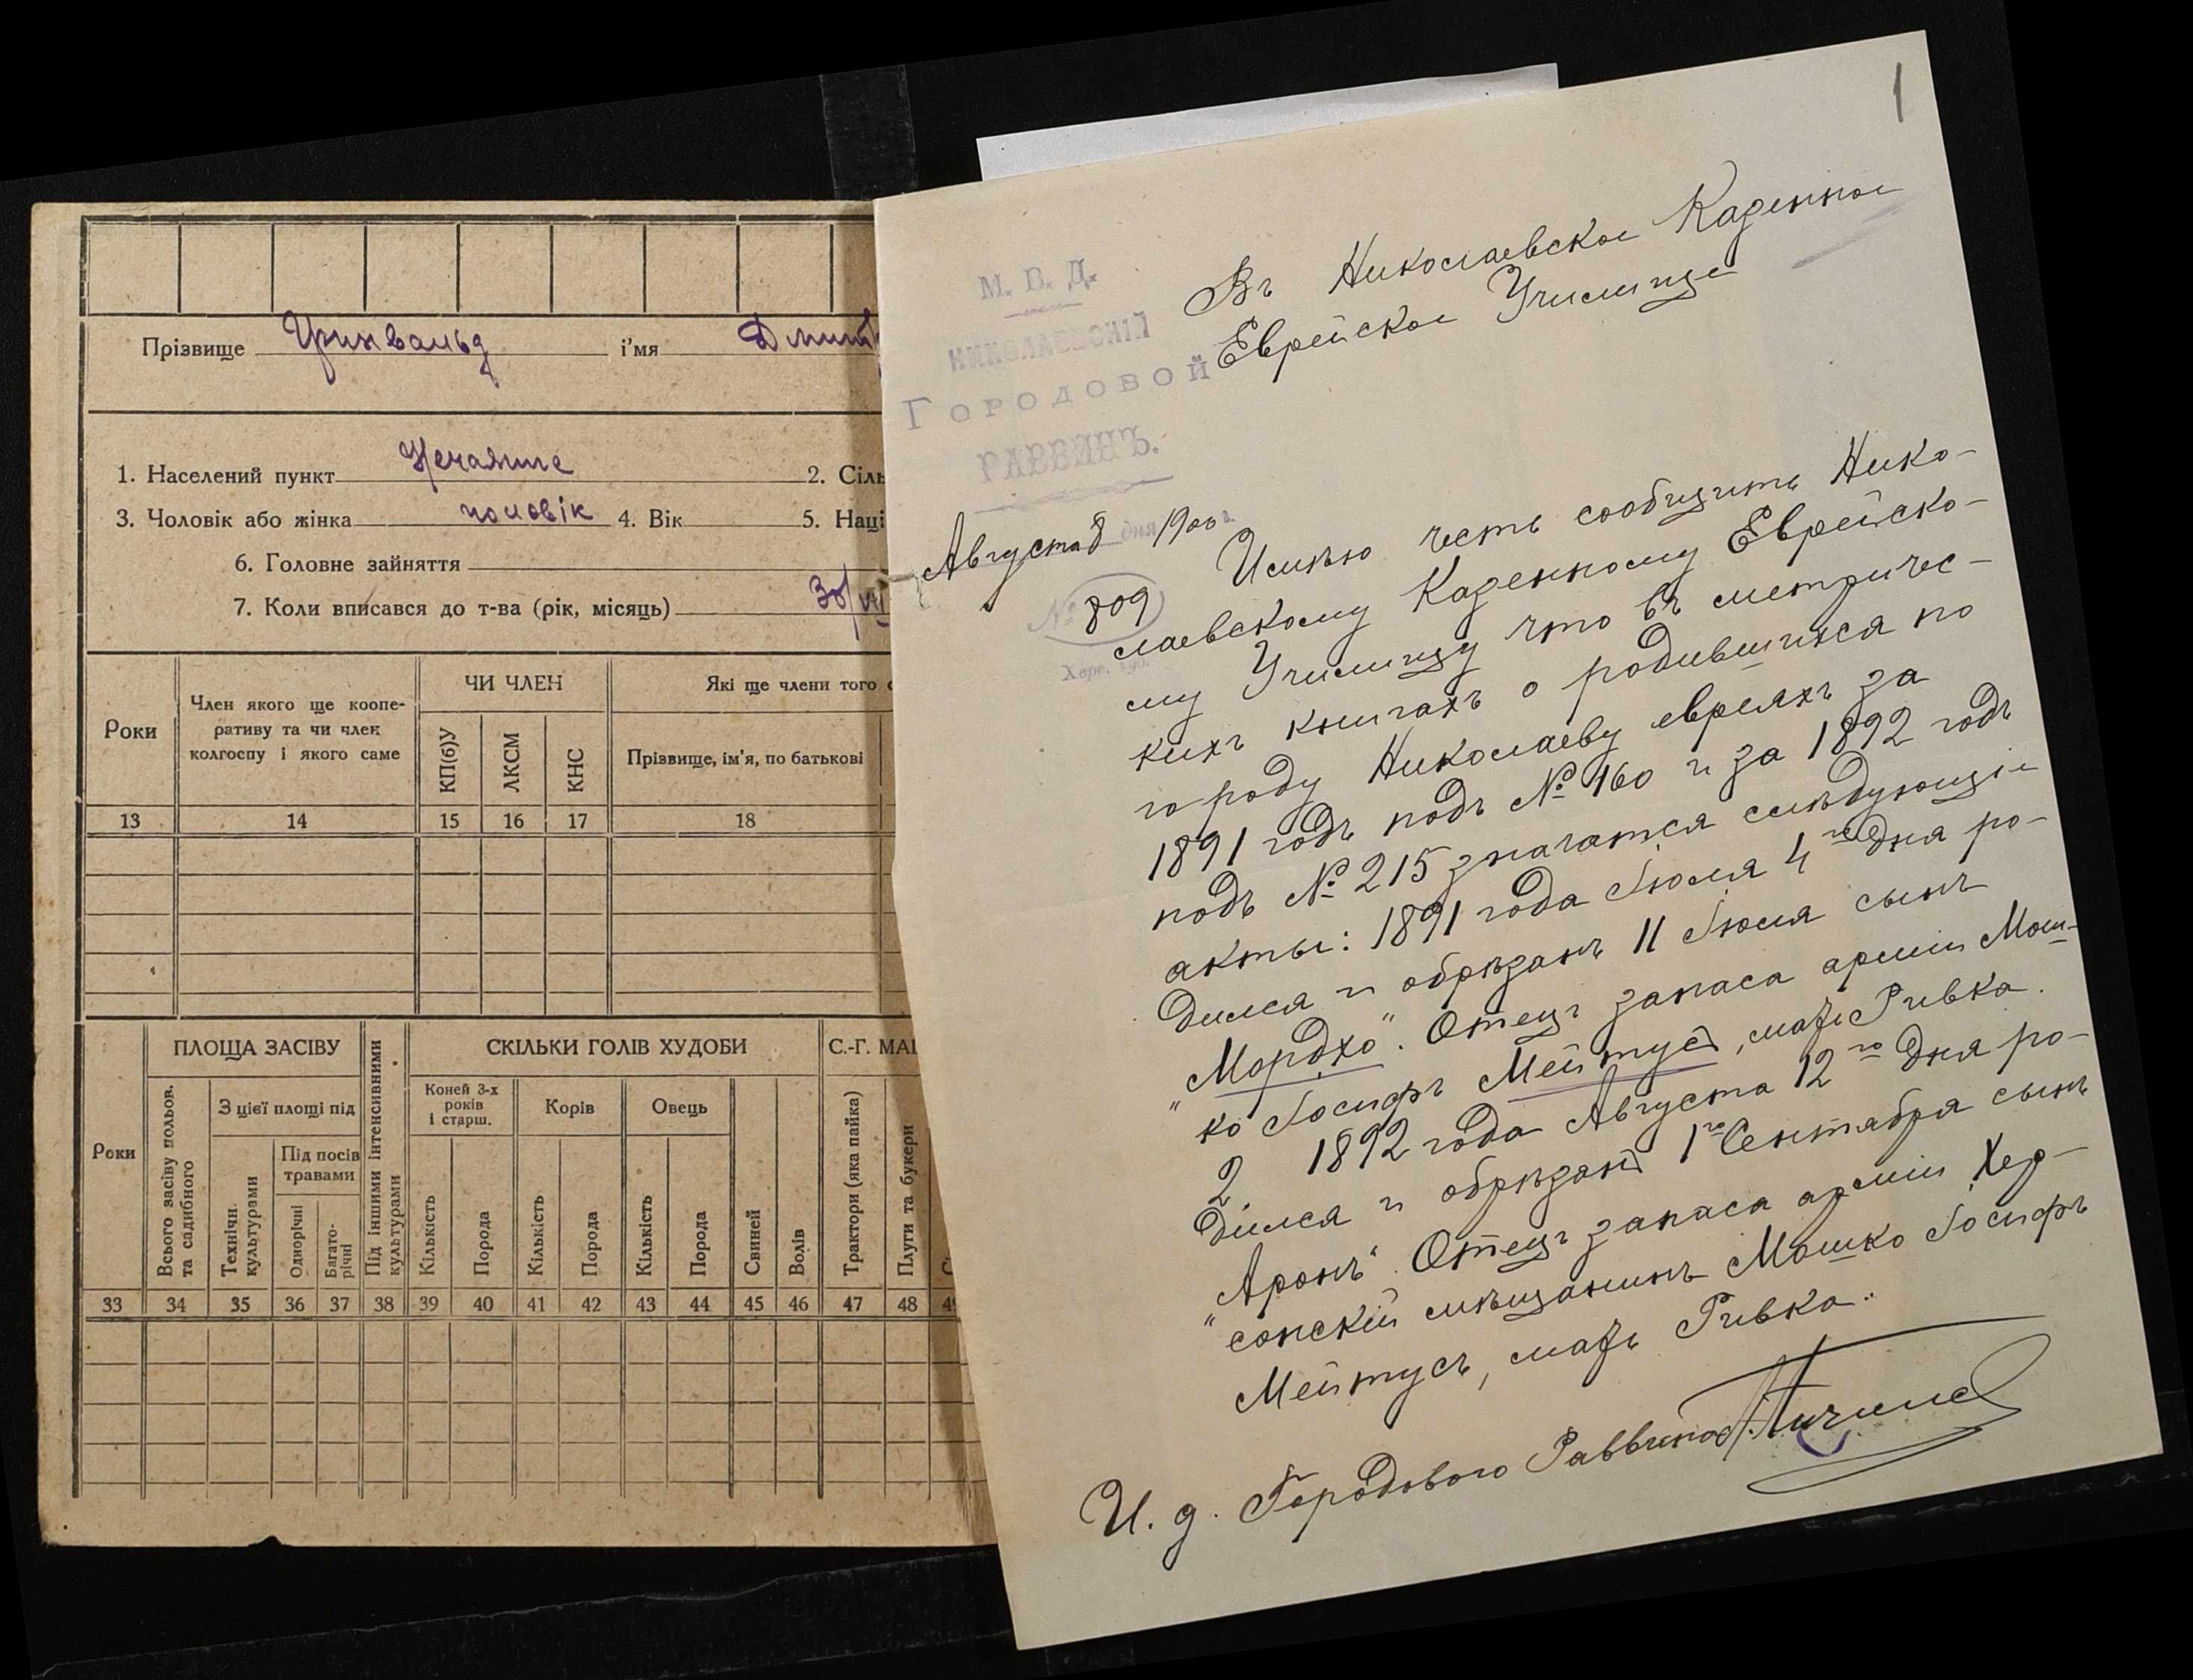 Прізвище Гринвальд і'мя Дмит
1. Населений пункт Нечаяне 2. Сіль
3. Чоловік або жінка чоловік 4. Вік 5. Наці
6. Головне зайняття
7. Коли вписався до т-ва (рік, місяць) 30/VII
Роки
Член якого ще коопе-
ративу та чи член
колгоспу і якого саме
ЧИ ЧЛЕН
КП(б)У
ЛКСМ
КНС
Які ще члени того
Прізвище, ім'я, по батькові
13 14 15 16 17 18
Роки
ПЛОЩА ЗАСІВУ
Всього засіву польов.
та садибного
З цієї площі під
Технічн.
культурами
Під посів
травами
Однорічні
Багато-
річні
Під іншими інтенсивними
культурами
СКІЛЬКИ ГОЛІВ ХУДОБИ
Коней 3-х
років
і старш.
Кількість
Порода
Корів
Кількість
Порода
Овець
Кількість
Порода
Свиней
Волів
С.-Г. МАШ
Трактори (яка пайка)
Плуги та букери
33 34 35 36 37 38 39 40 41 42 43 44 45 46 47 48 49
1
М. В. Д.
НИКОЛАЕВСКІЙ
ГОРОДОВОЙ
РАВВИНЪ.
Августа 8 дня 1900 г.
№ 809
Херс. губ.
Въ Николаевское Казенное
Еврейское Училище
Имѣю честь сообщить Нико-
лаевскому Казенному Еврейско-
му Училищу что въ метричес-
кихъ книгахъ о родившихся по
городу Николаеву евреяхъ за
1891 годъ подъ № 160 и за 1892 годъ
подъ № 215 значатся слѣдующіе
акты: 1891 года Іюля 4 го дня ро-
дился и обрѣзанъ 11 Іюля сынъ
"Мордхо". Отецъ запаса арміи Мош-
ко Іосифъ Мейтусъ, мать Ривка.
2 1892 года Августа 12 го дня ро-
дился и обрѣзанъ 1 го Сентября сынъ
"Аронъ". Отецъ запаса арміи Хер-
сонскій мѣщанинъ Мошко Іосифъ
Мейтусъ, мать Ривка.
И. д. Городового Раввина